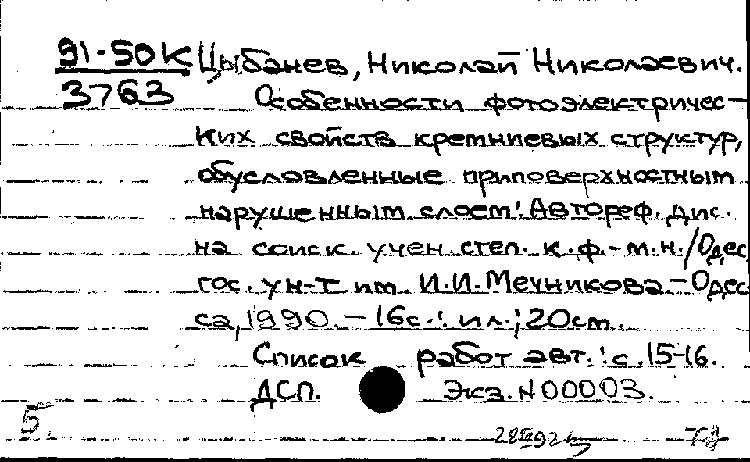 91-50К Цыбанев, Николай Николаевич.
3763 Особенности фотоэлектричес-
ких свойств кремниевых структур,
обусловленные приповерхностным
нарушенным слоем: Автореф. дис.
на соиск. учен. степ. к.ф.-м.н./Одес
гос. ун-т им. И.И. Мечникова.-Одес
са, 1990. - 16с.: ил.; 20см.
Список работ авт.: с. 15-16.
ДСП. Экз. N 00003.
5.